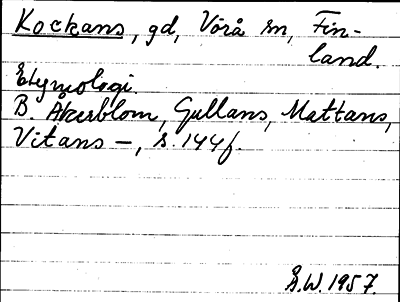 Kockans, gd, Vörå sn, Fin-
land.
Etymologi.
B. Åkerblom, Gullans, Mattans,
Vitans –, s. 144f.
S.W. 1957